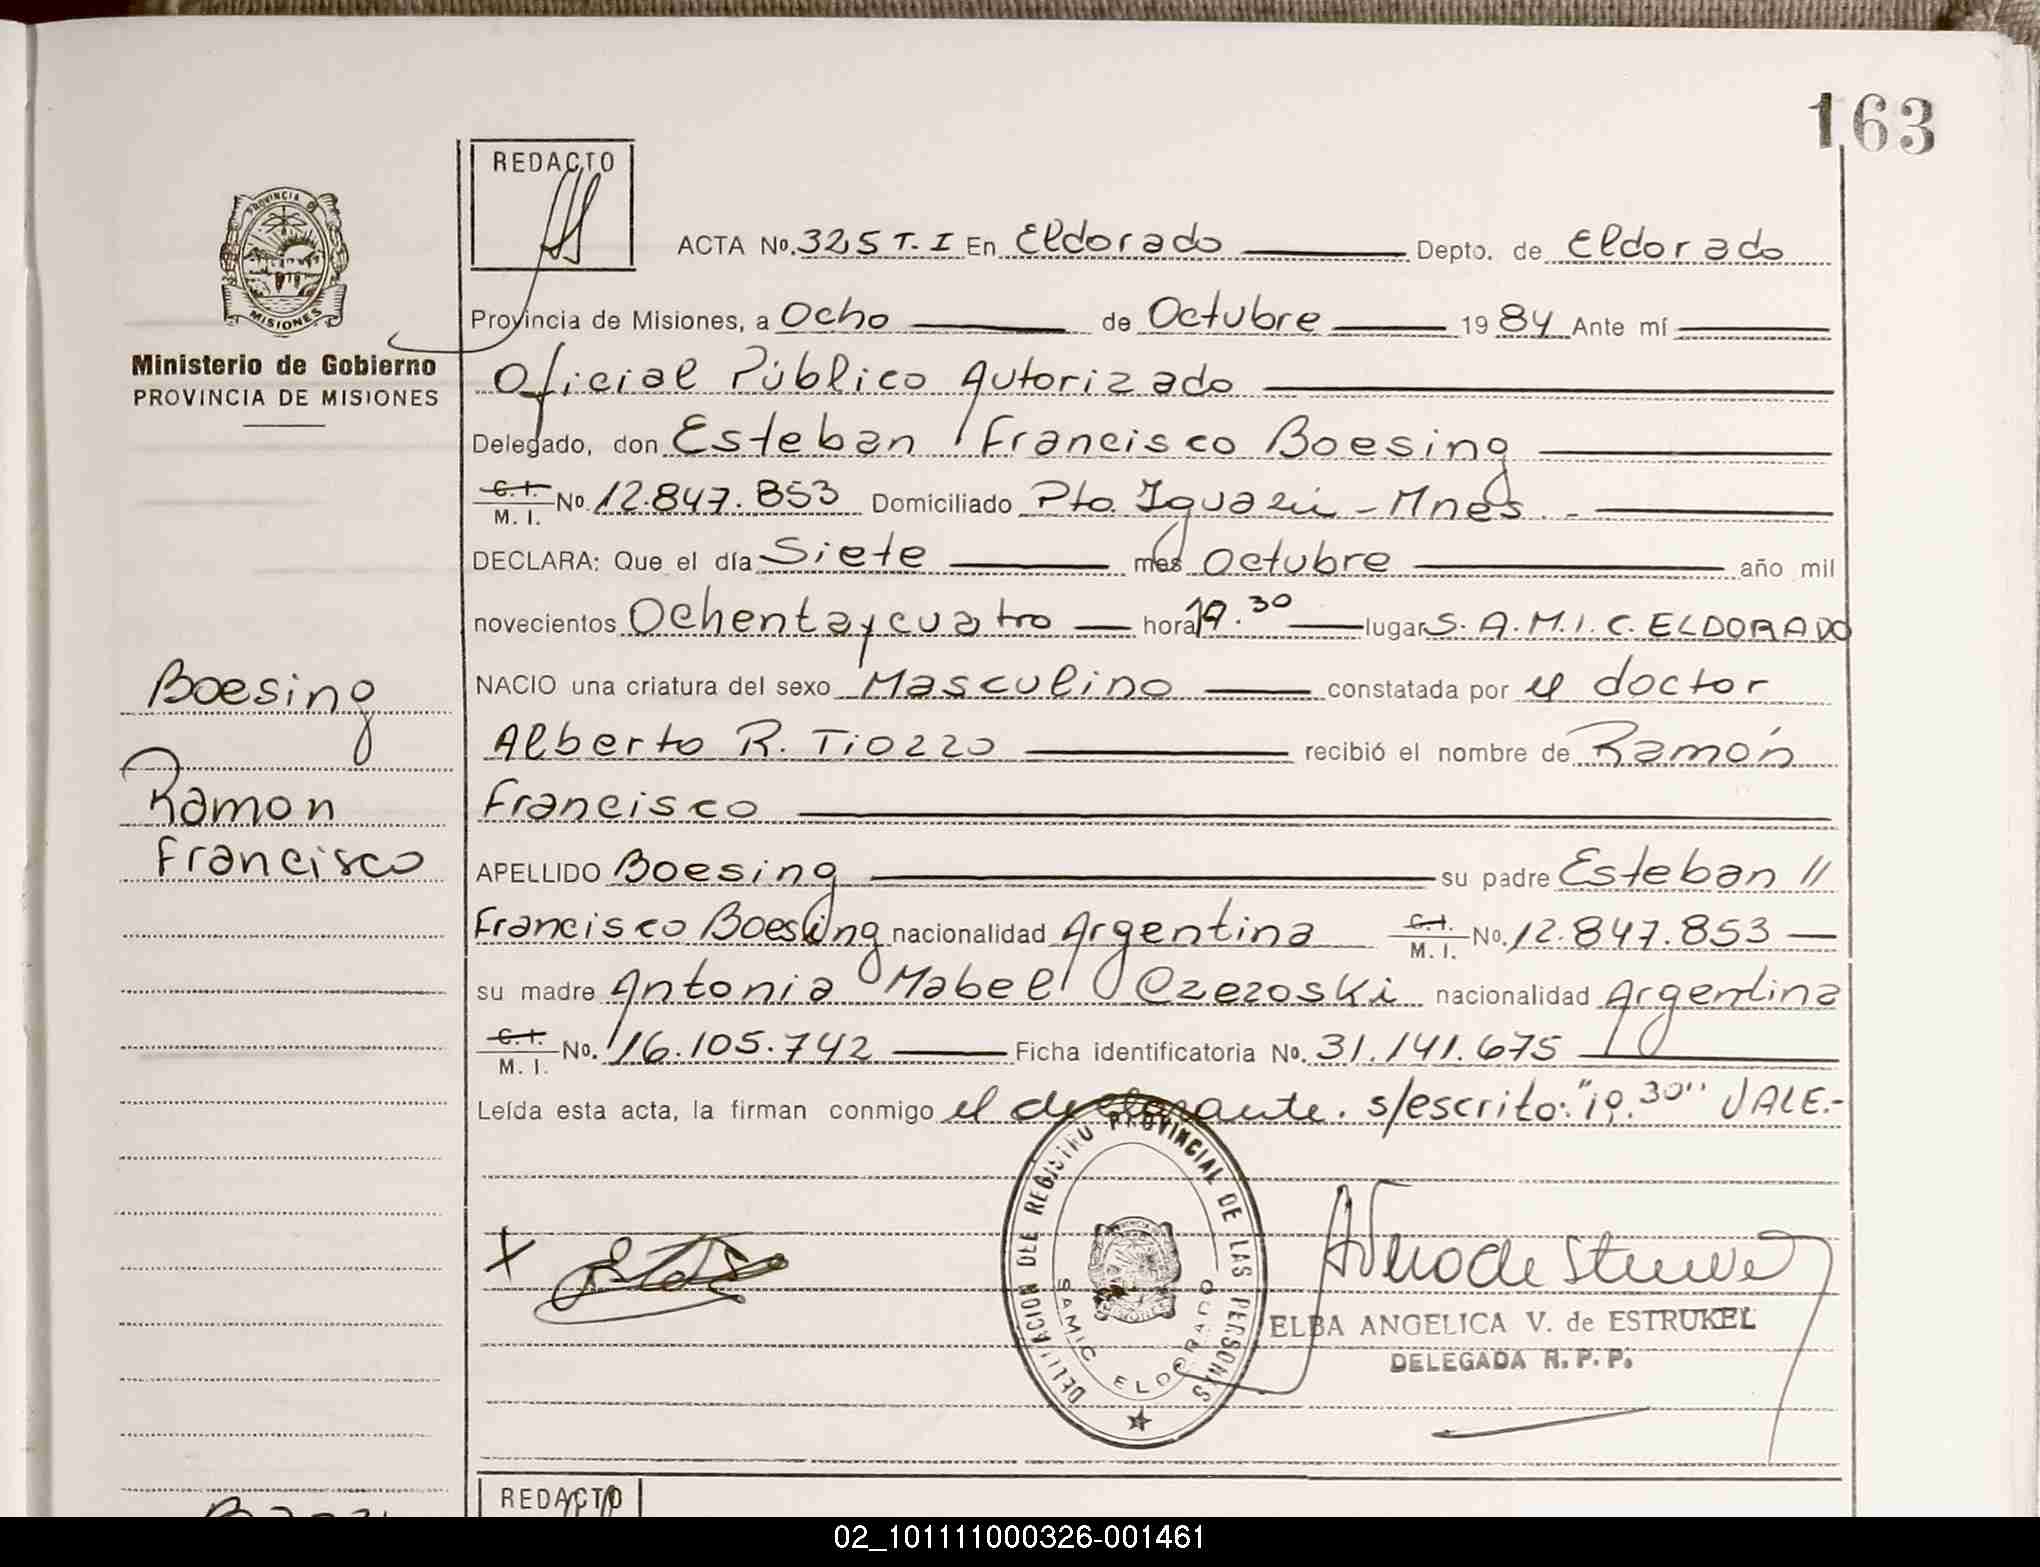 163
REDACTO
PROVINCIA DE
MISIONES
Ministerio de Gobierno
PROVINCIA DE MISIONES
ACTA No. 325 T. I En Eldorado Depto. de Eldorado
Provincia de Misiones, a Ocho de Octubre 1984 Ante mí
Oficial Público Autorizado
Delegado, don Esteban Francisco Boesing
C. I. M. I. No. 12.847.853 Domiciliado Pto. Iguazú - Mnes. -
DECLARA: Que el día Siete mes Octubre año mil
novecientos Ochenta y cuatro hora 19.30 lugar S. A. M. I. C. ELDORADO
NACIO una criatura del sexo Masculino constatada por el doctor
Alberto R. Tiozzo recibió el nombre de Ramón
Francisco
APELLIDO Boesing su padre Esteban //
Francisco Boesing nacionalidad Argentina C. I. M. I. No. 12.847.853
su madre Antonia Mabel Czezoski nacionalidad Argentina
C. I. M. I. No. 16.105.742 Ficha identificatoria No. 31.141.675
Leída esta acta, la firman conmigo el declarante. s/escrito: "19.30" VALE.-
Boesing
Ramon
Francisco
X
DEL REGISTRO PROVINCIAL DE LAS PERSONAS
SAMIC ELDORADO
ELBA ANGELICA V. de ESTRUKEL
DELEGADA R. P. P.
REDACTO
02_101111000326-001461